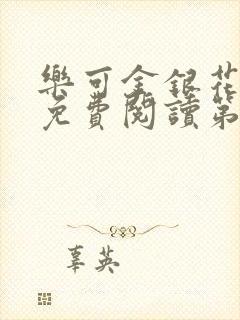 樂可金銀花
免費閱讀第
辜英